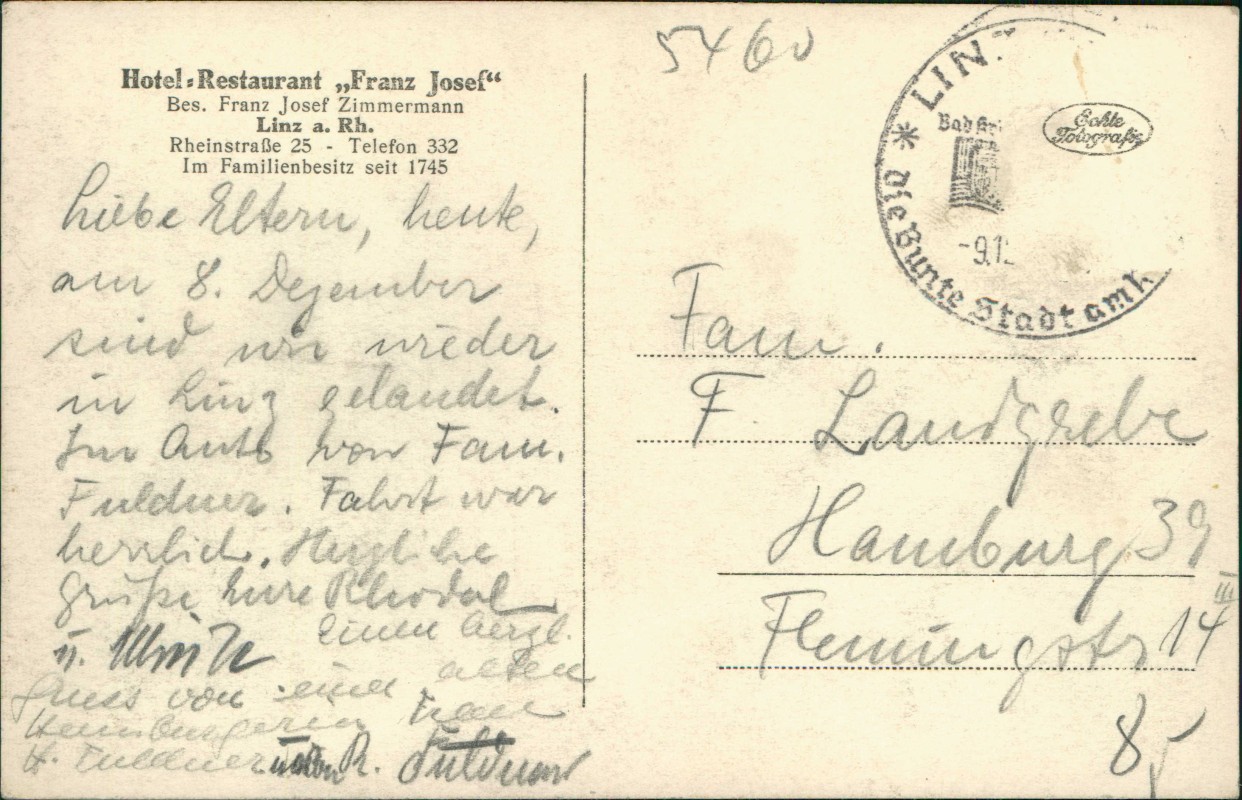 Hotel-Restaurant „Franz Josef“
Bes. Franz Josef Zimmermann
Linz a. Rh.
Rheinstraße 25 - Telefon 332
Im Familienbesitz seit 1745
Liebe Eltern, heute,
am 8. Dezember
sind wir wieder
in Linz gelandet.
Im Auto von Fam.
Fuldner. Fahrt war
herrlich. Herzliche
Grüße Eure
u.
Einen herzl.
Gruss von einer alten
Hamburgerin Frau
H. Fuldner R. Fuldner
5460
* LIN
Die Bunte Stadt am
-9.12
Echte
Fotografie
Fam.
F Landgrebe
Hamburg 39
Flemingstr 14 III
85